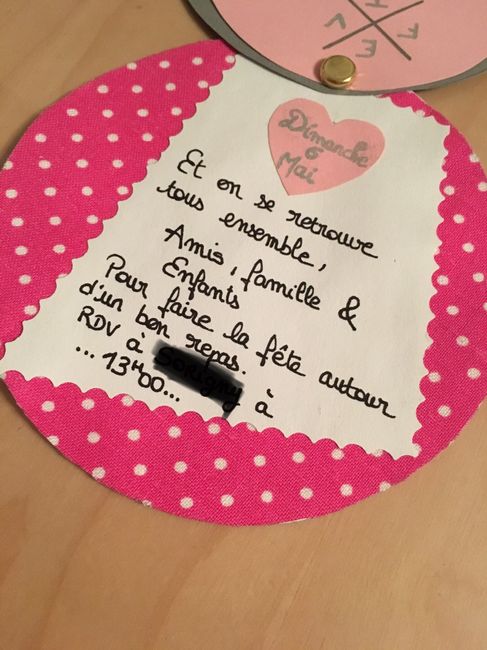 V H F E
Dimanche
6
Mai
Et on se retrouve
tous ensemble,
Amis, famille &
Enfants
Pour faire la fête autour
d'un bon repas.
RDV à à
... 13H00...